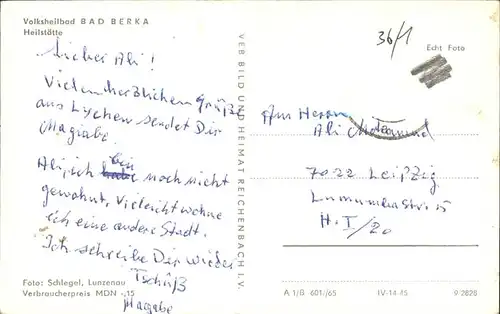 Volksheilbad BAD BERKA
Heilstätte
Lieber Ali!
Vielen herzlichen Grüße
aus Lychen sendet Dir
Magabe.
Ali, ich bin noch nicht
gewohnt. Vieleicht wohne
ich eine andere Stadt.
Ich schreibe Dir wieder
Tschüß
Magabe
Foto: Schlegel, Lunzenau
Verbraucherpreis MDN -,15
VEB BILD UND HEIMAT REICHENBACH I.V.
36/1
Echt Foto
An Herrn
Ali
7022 Leipzig
Lumumbastr. 15
H. I/20
A 1/B 601/65 IV-14-45 9 2828